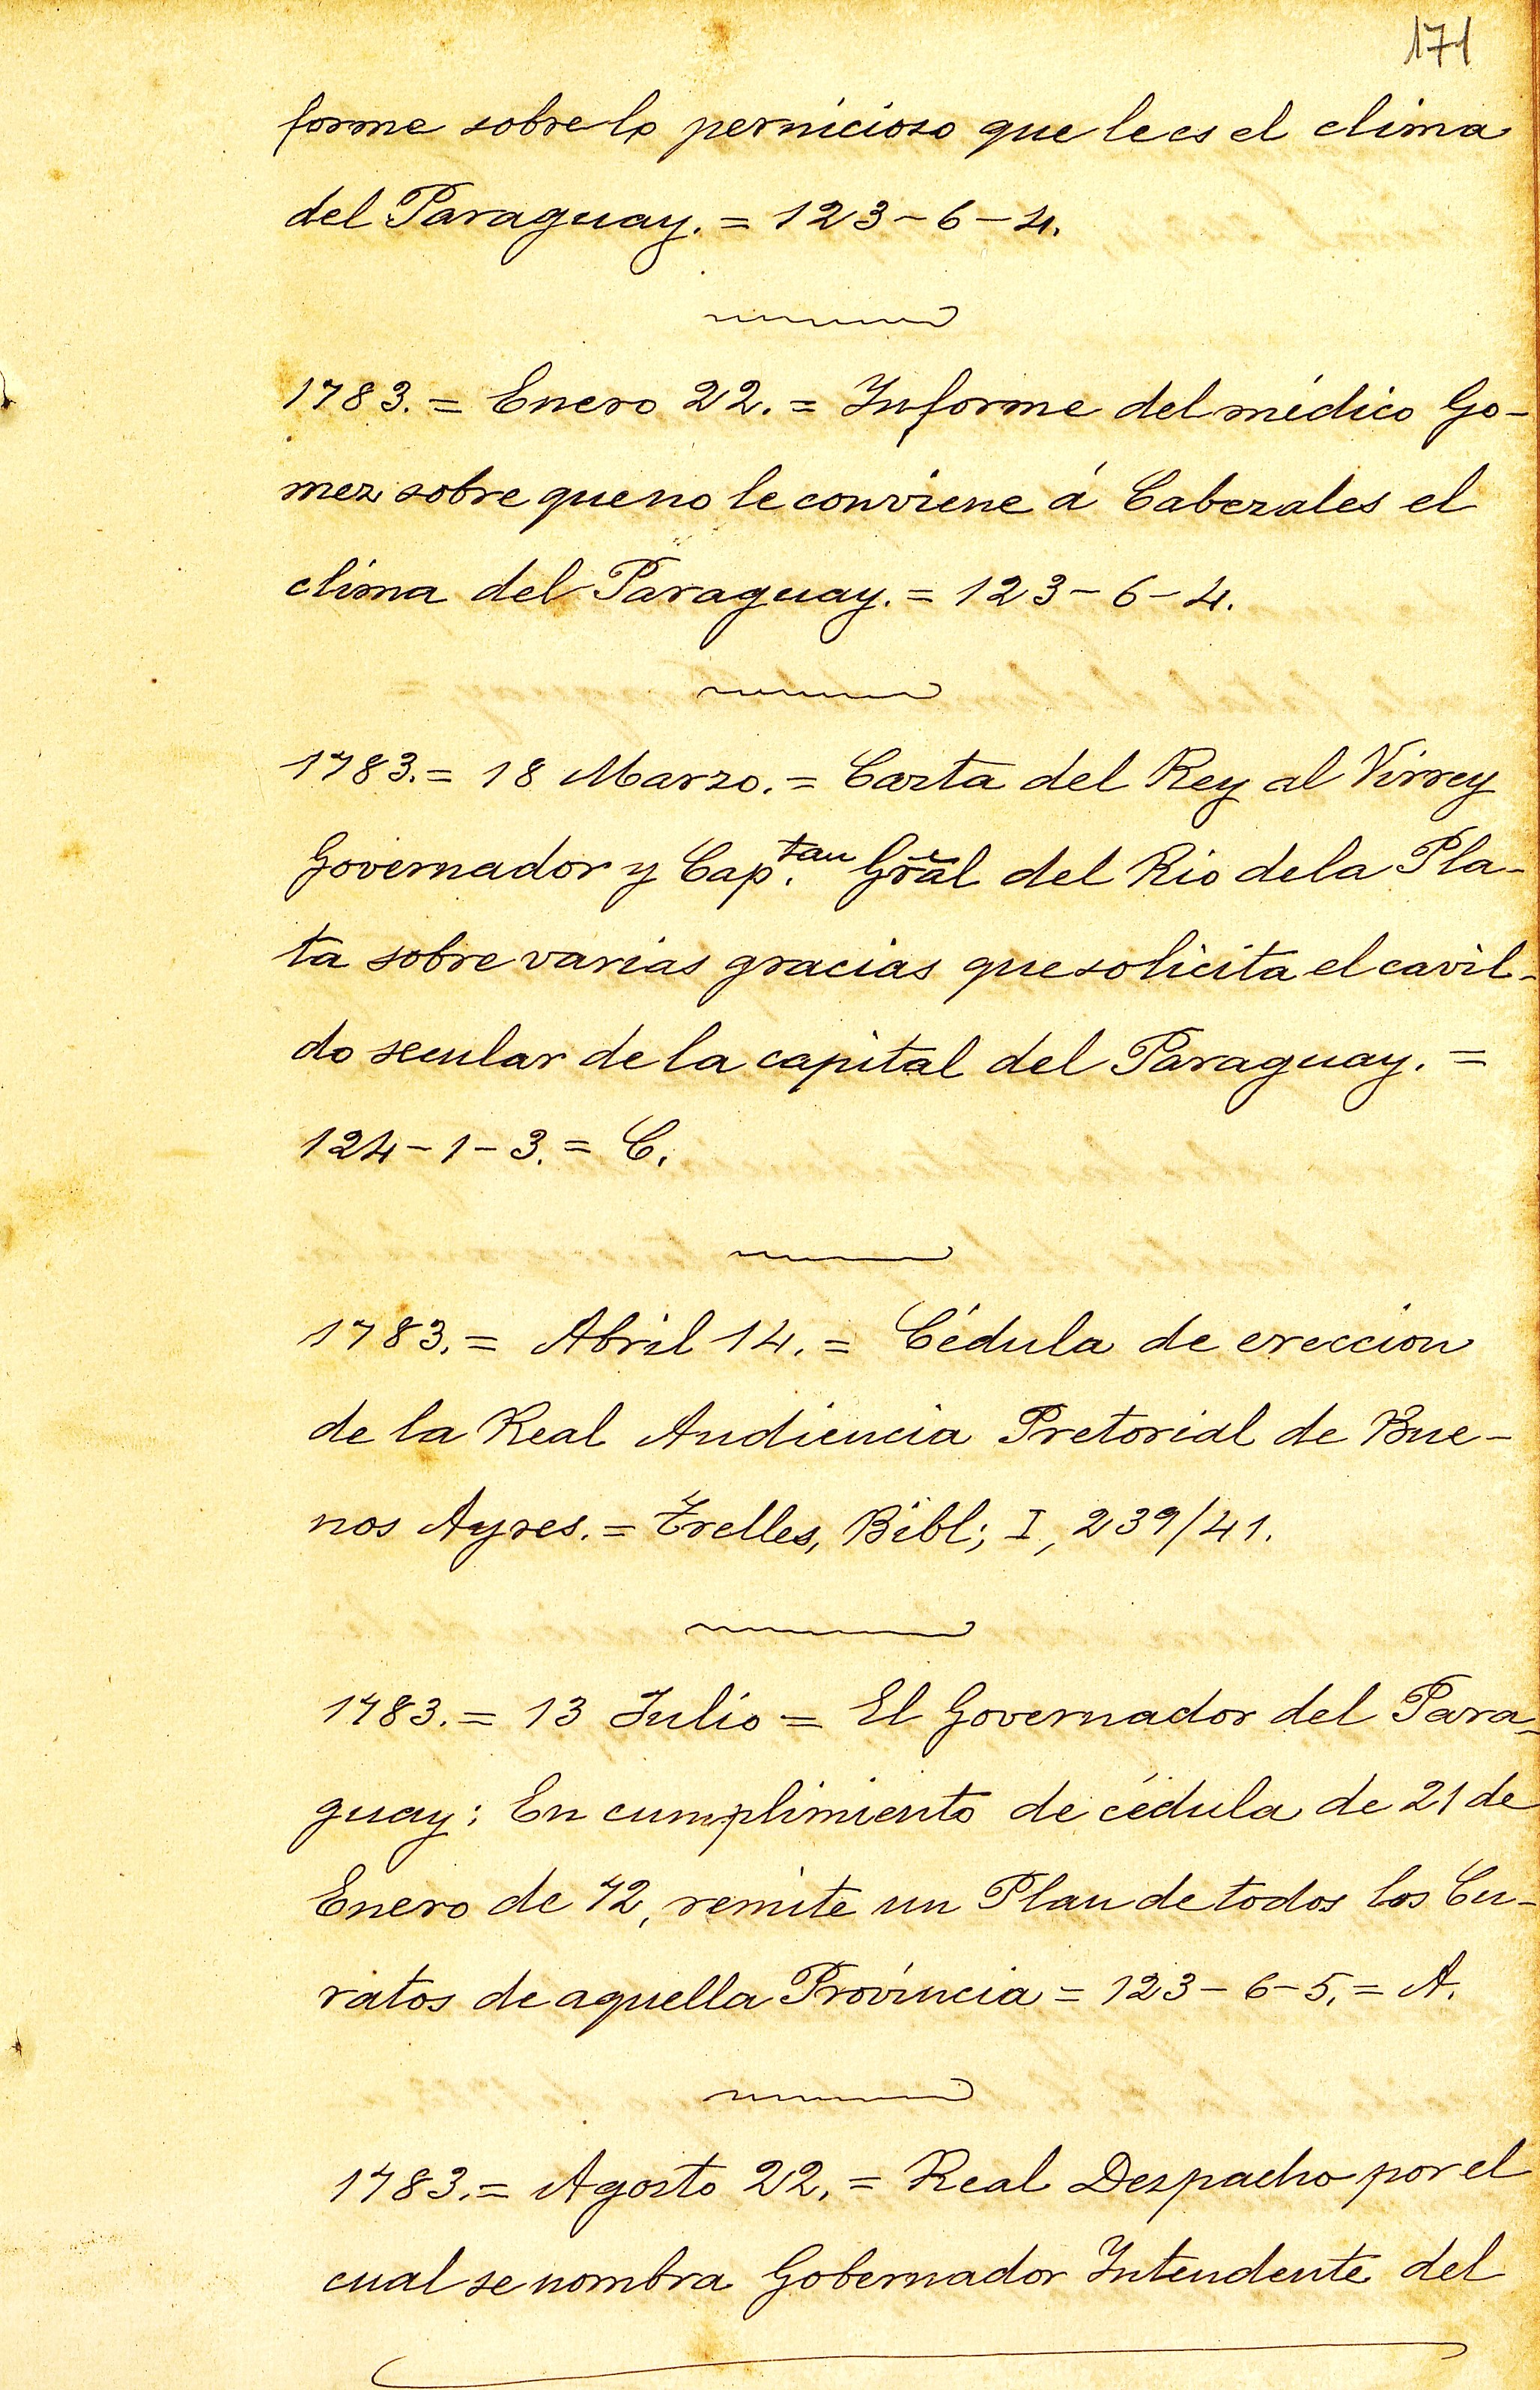 171
forme sobre lo pernicioso que le es el clima
del Paraguay. = 123-6-4.
1783. = Enero 22. = Informe del médico Go-
mez sobre que no le conviene á Cabezales el
clima del Paraguay. = 123-6-4.
1783. = 18 Marzo. = Carta del Rey al Virrey
Governador y Cap.tan Gral del Rio de la Pla-
ta sobre varias gracias que solicita el cavil-
do secular de la capital del Paraguay. =
124-1-3. = C.
1783. = Abril 14. = Cédula de ereccion
de la Real Audiencia Pretorial de Bue-
nos Ayres. = Trelles, Bibl; I, 239/41.
1783. = 13 Julio = El Governador del Para-
guay: En cumplimiento de cédula de 21 de
Enero de 72, remite un Plan de todos los Cu-
ratos de aquella Província = 123-6-5. = A.
1783. = Agosto 22. = Real Despacho por el
cual se nombra Gobernador Intendente del